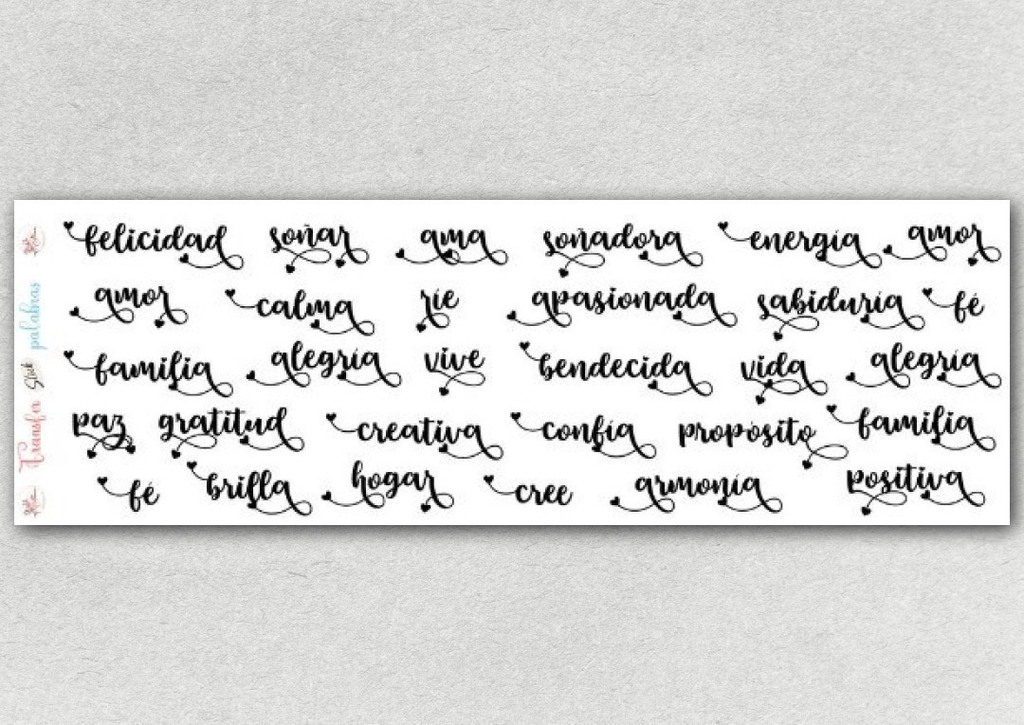 felicidad soñar ama soñadora energía amor
amor calma ríe apasionada sabiduría fé
familia alegría vive bendecida vida alegría
paz gratitud creativa confía propósito familia
fé brilla hogar cree armonía positiva
Transfer Stick palabras